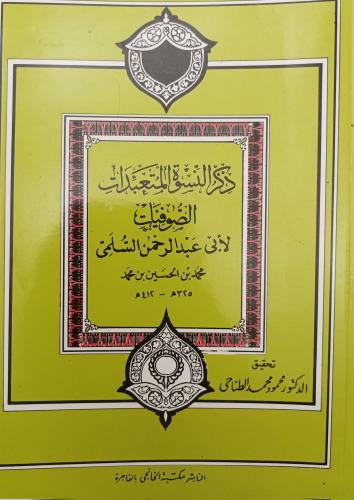 ذكر النسوة المتعبدات
الصوفيات
لأبي عبد الرحمن السلمي
محمد بن الحسين بن محمد
٣٢٥هـ - ٤١٢هـ
تحقيق
الدكتور محمود محمد الطناحي
الناشر مكتبة الخانجي بالقاهرة